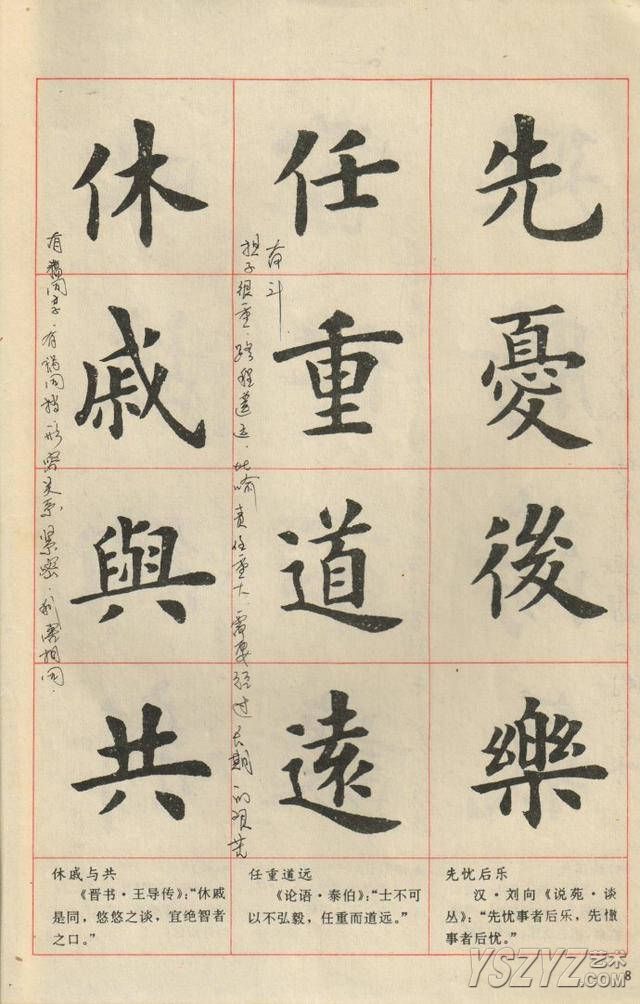 先憂後樂
任重道遠
休戚與共
担子很重·路程遥远·比喻责任重大 需要经过长期的艰苦
奋斗
有福同享·有祸同当 形容关系紧密·利害相同·
先忧后乐
汉·刘向《说苑·谈
丛》：“先忧事者后乐，先
事者后忧。”
任重道远
《论语·泰伯》：“士不可
以不弘毅，任重而道远。”
休戚与共
《晋书·王导传》：“休戚
是同，悠悠之谈，宜绝智者
之口。”
YSZYZ艺术
.COM
8